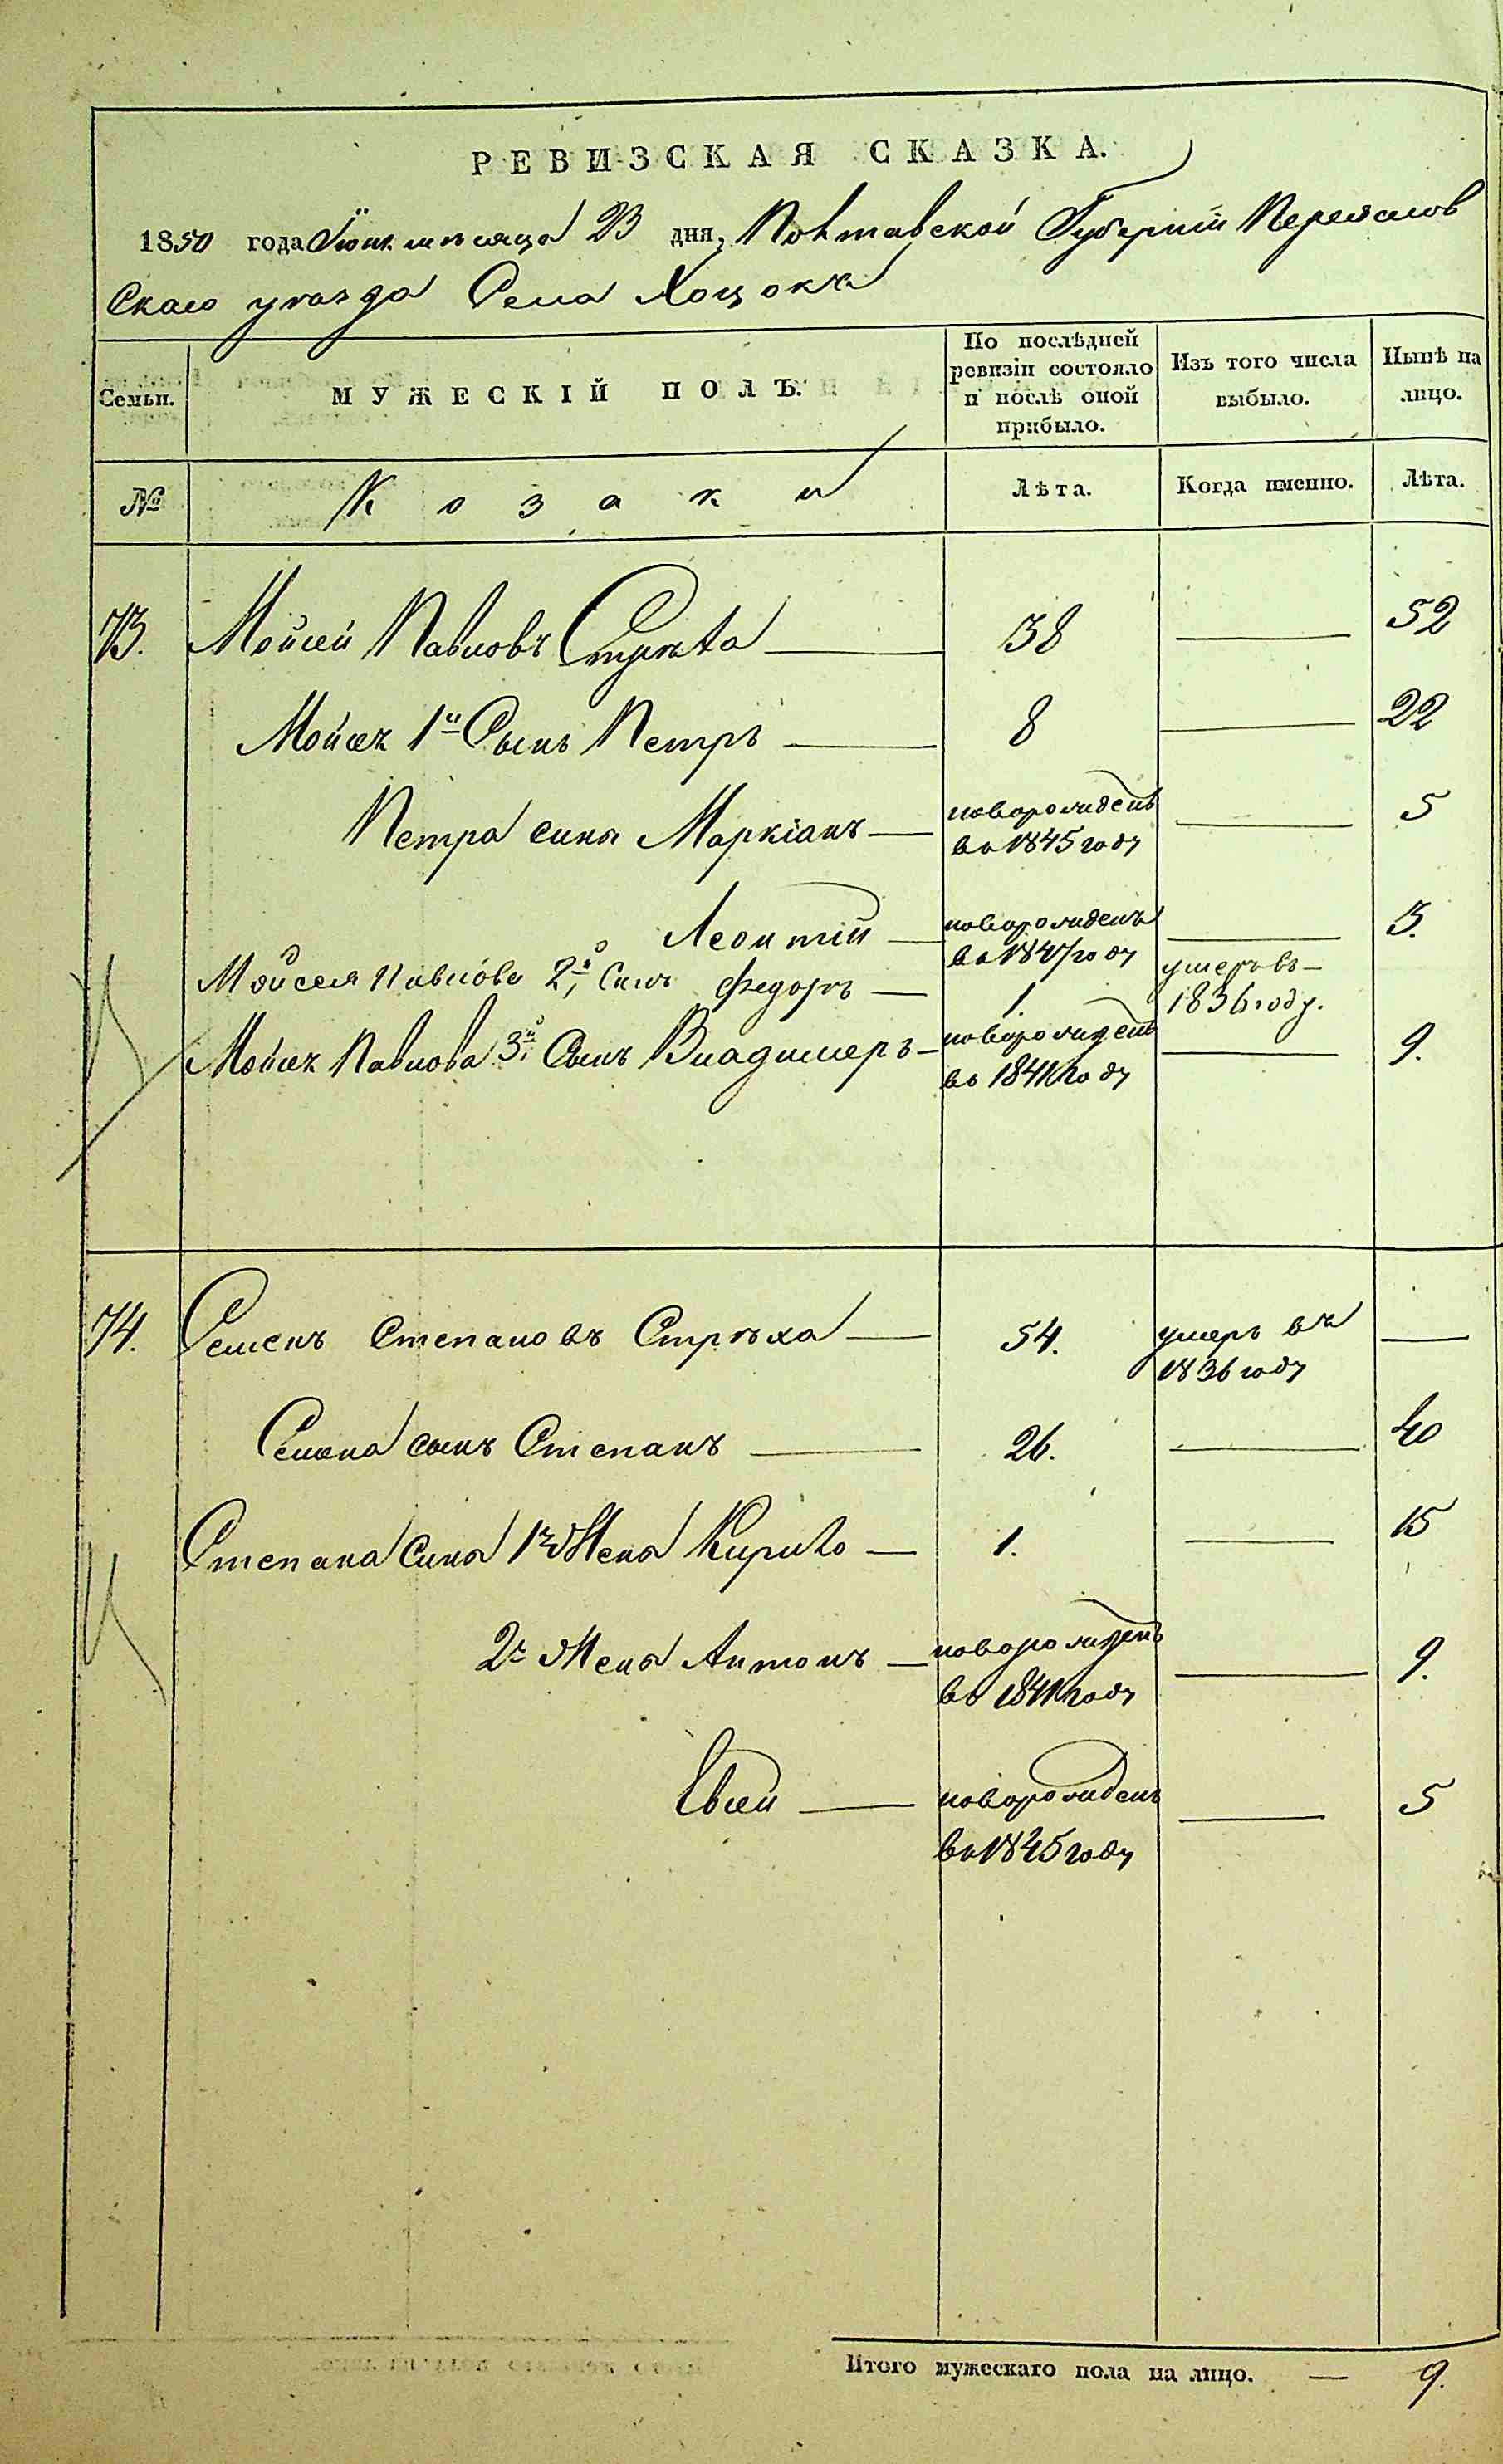 РЕВИЗСКАЯ СКАЗКА.
1850 года Іюня мѣсяца 23 дня, Полтавской Губерніи Переяслов
Скаго уѣзда Села Хоцокъ
Семьи. МУЖЕСКІЙ ПОЛЪ. По послѣдней ревизіи состояло и послѣ оной прибыло. Изъ того числа выбыло. Нынѣ на лицо.
№ Козаки Лѣта. Когда именно. Лѣта.
73. Мойсей Павловъ Стрѣха 38 52
Мойсея 1й Сынъ Петръ 8 22
Петра сины Маркіанъ новорожденъ въ 1845 году 5
Леонтій новорожденъ въ 1847 году 3.
Мойсея Павлова 2й Синъ Федоръ 1. умеръ въ 1836 году.
Мойсея Павлова 3й Сынъ Владимеръ новорожденъ въ 1841 году 9.
74. Семенъ Степановъ Стрѣха 54. умеръ въ 1836 году
Семена сынъ Степанъ 26. 40
Степана Сина 1й Жены Кирило 1. 15
2й Жены Антонъ новорожденъ въ 1841 году 9.
Евсей новорожденъ въ 1845 году 5
Итого мужескаго пола на лицо. 9.